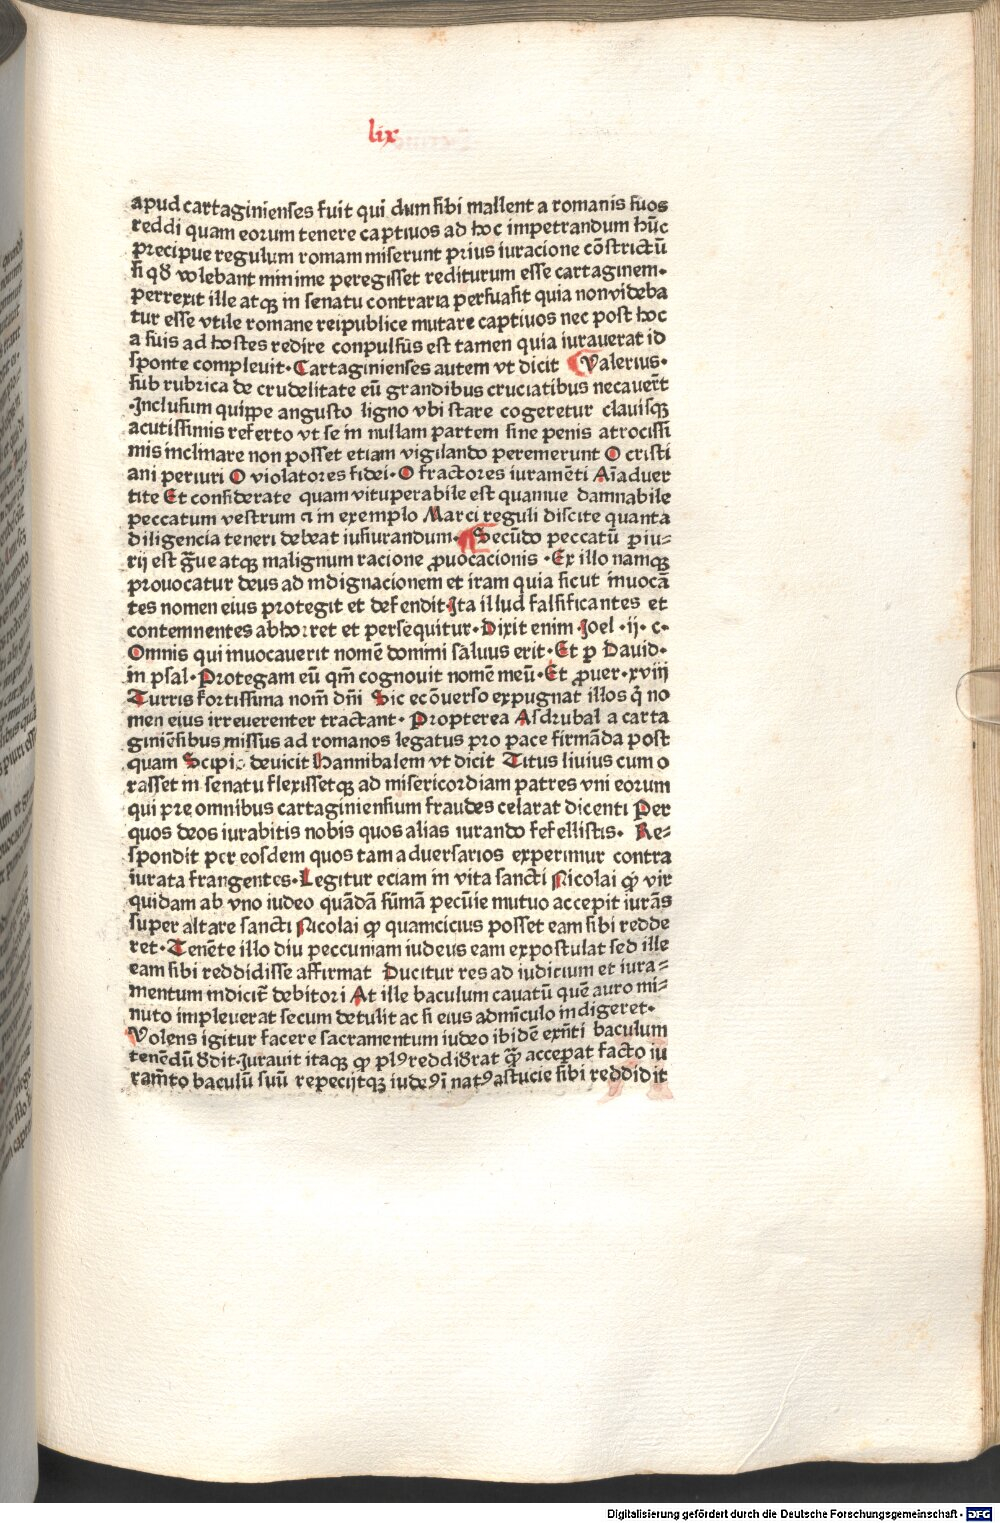 lix
apud cartaginienses fuit qui dum sibi mallent a romanis suos
reddi quam eorum tenere captiuos ad hoc impetrandum hūc
precipue regulum romam miserunt prius iuracione cōstrictū
si qd volebant minime peregisset rediturum esse cartaginem·
perrexit ille atqꝫ in senatu contraria persuasit quia non videba
tur esse vtile romane reipublice mutare captiuos nec post hoc
a suis ad hostes redire conpulsus est tamen quia iurauerat id
sponte compleuit· Cartaginienses autem vt dicit Valerius·
sub rubrica de crudelitate eū grandibus cruciatibus necauer̄t
·Inclusum quippe angusto ligno vbi stare cogeretur clauisqꝫ
acutissimis referto vt se in nullam partem sine penis atrocissi
mis inclinare non posset etiam vigilando peremerunt O cristi
ani periuri O violatores fidei· O fractores iuramēti Aīaduer
tite Et considerate quam vituperabile est quamue damnabile
peccatum vestrum ⁊ in exemplo Marci reguli discite quanta
diligencia teneri debeat iusiurandum· Secūdo peccatū ꝑiu⸗
rij est gͣue atqꝫ malignum racione ꝓuocacionis ·Ex illo namqꝫ
prouocatur deus ad indignacionem et iram quia sicut inuocā
tes nomen eius protegit et defendit·Ita illud falsificantes et
contemnentes abhorret et persequitur·Dixit enim Joel ·ij· c·
Omnis qui inuocauerit nomē domini saluus erit·Et ꝑ Dauid·
in psal·Protegam eū qm̄ cognouit nomē meū·Et ꝓuer·xviij
Turris fortissima nom̄ dn̄i Sic ecōuerso expugnat illos q̇ no
men eius irreuerenter tractant· Propterea Asdrubal a carta
giniēsibus missus ad romanos legatus pro pace firmāda post
quam Scipio deuicit Hannibalem vt dicit Titus liuius cum o
rasset in senatu flexissetqꝫ ad misericordiam patres vni eorum
qui pre omnibus cartaginiensium fraudes celarat dicenti Per
quos deos iurabitis nobis quos alias iurando fefellistis· Re⸗
spondit per eosdem quos tam aduersarios experimur contra
iurata frangentes·Legitur eciam in vita sancti Nicolai ꝙ vir
quidam ab vno iudeo quādā sūmā pecūie mutuo accepit iurās
super altare sancti Nicolai ꝙ quamcicius posset eam sibi redde
ret·Tenēte illo diu peccuniam iudeus eam expostulat sed ille
eam sibi reddidisse affirmat Ducitur res ad iudicium et iura⸗
mentum indicit᷑ debitori At ille baculum cauatū quē auro mi⸗
nuto impleuerat secum detulit ac si eius admīculo indigeret·
Volens igitur facere sacramentum iudeo ibidē exn̄ti baculum
tenēdū ddit·Jurauit itaqꝫ ꝙ plꝰ reddidrat qͣꝫ acceperat facto iu
ram̄to baculū suū repeciitqꝫ iudeꝰ ī natꝰ astucie sibi reddidit
Digitalisierung gefördert durch die Deutsche Forschungsgemeinschaft - DFG